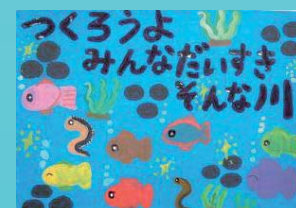 つくろうよ
みんなだいすき
そんな川